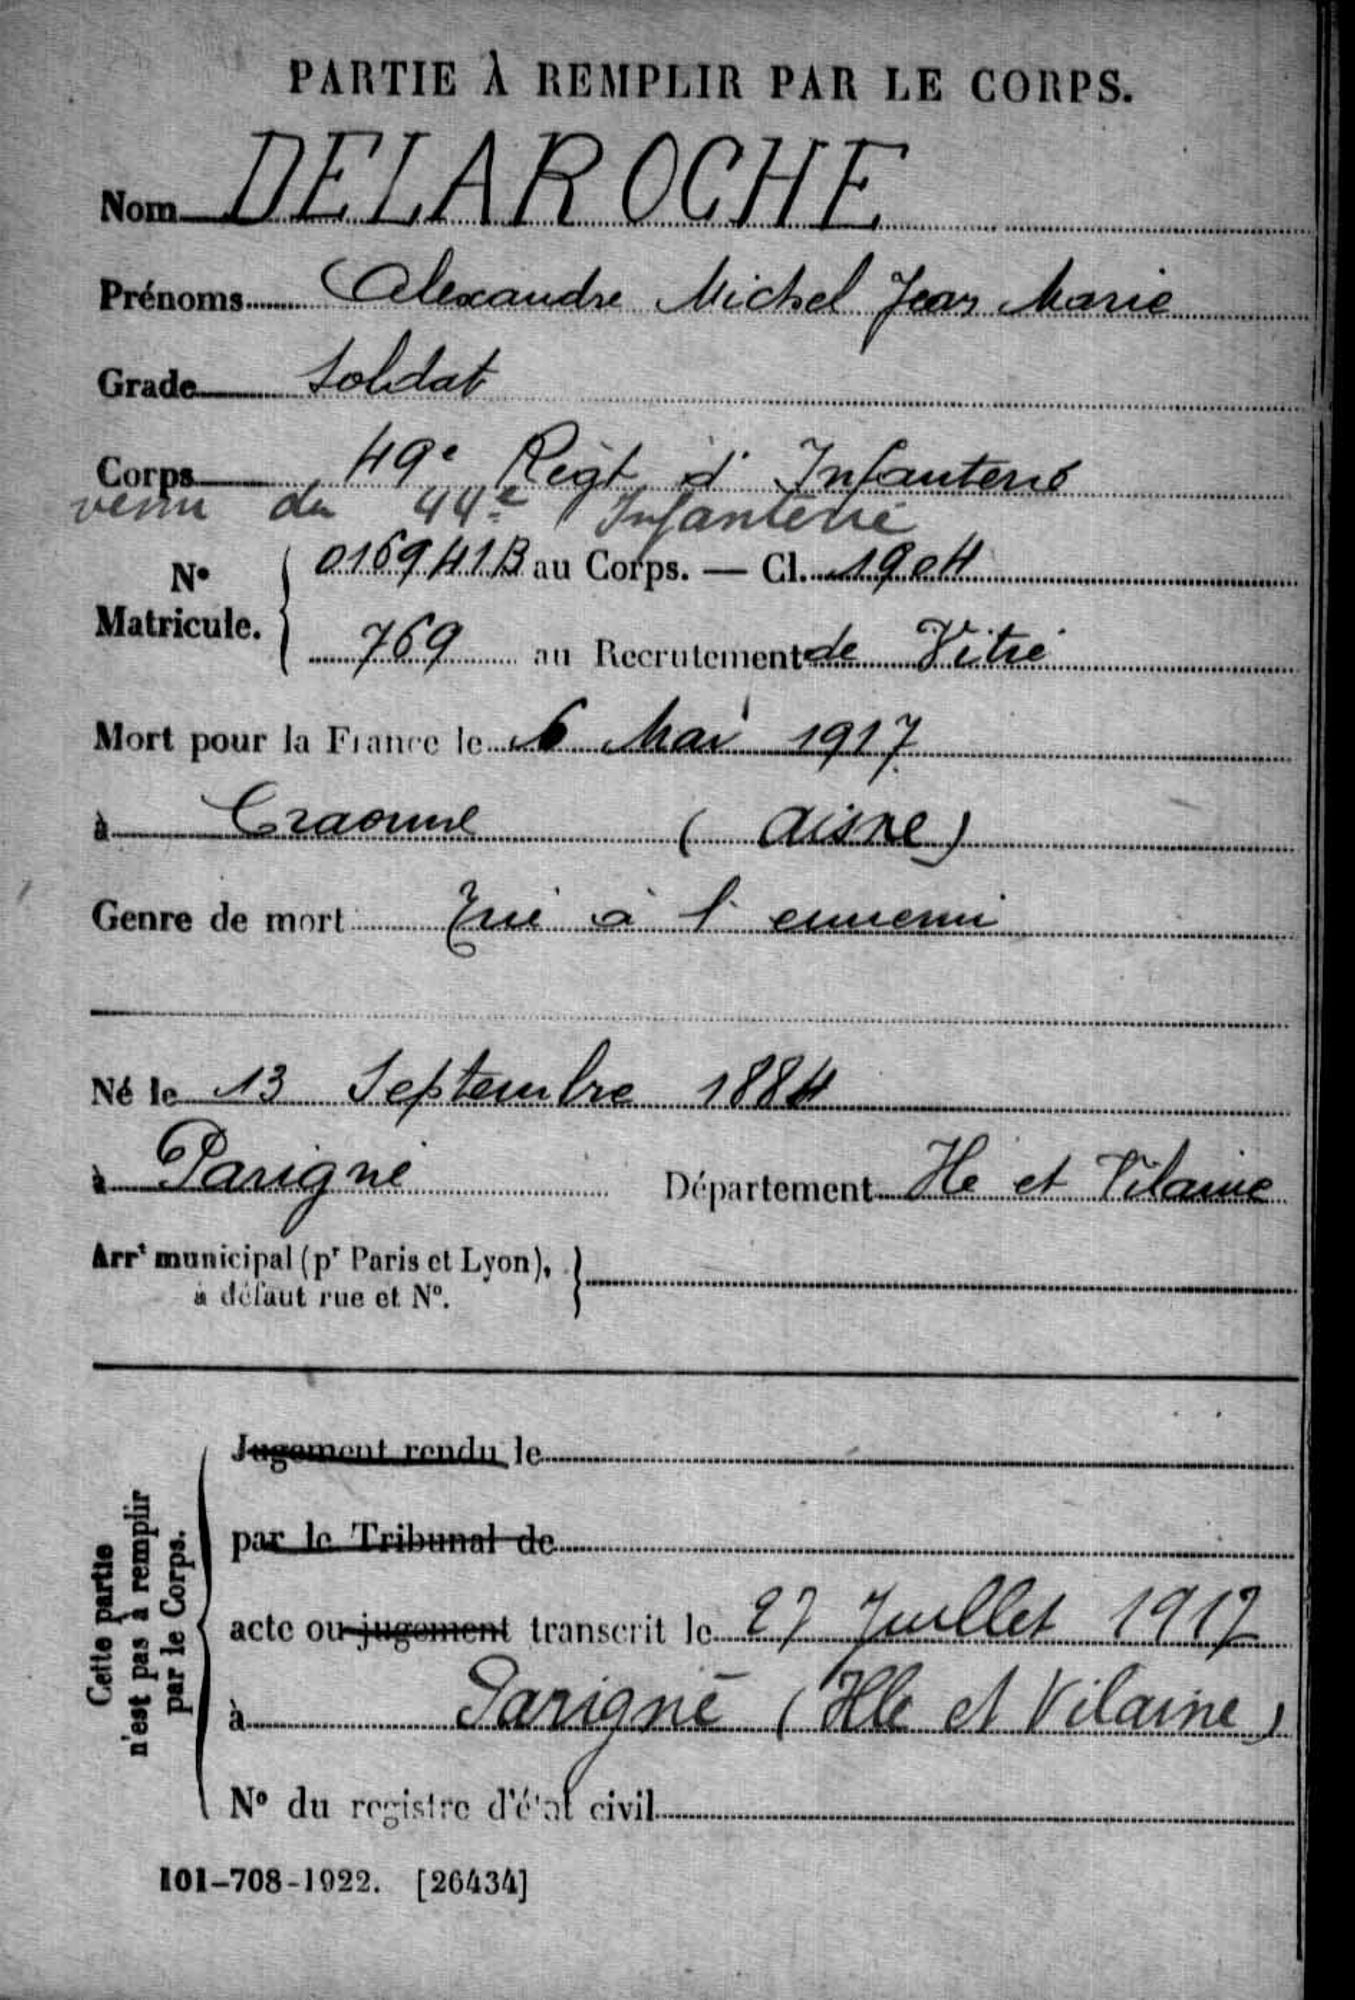 PARTIE À REMPLIR PAR LE CORPS.
Nom DELAROCHE
Prénoms Alexandre Michel Jean Marie
Grade Soldat
Corps 49e Régt d'Infanterie
venu du 44e Infanterie
No Matricule. 016941B au Corps. — Cl. 1904
769 au Recrutement de Vitré
Mort pour la France le 6 Mai 1917
à Craonne (Aisne)
Genre de mort Tué à l'ennemi
Né le 13 Septembre 1884
à Parigné Département Ile et Vilaine
Arrt municipal (pr Paris et Lyon),
à défaut rue et No.
Cette partie n'est pas à remplir par le Corps.
Jugement rendu le
par le Tribunal de
acte ou jugement transcrit le 27 Juillet 1917
à Parigné (Ille et Vilaine)
No du registre d'état civil
101-708-1922. [26434]